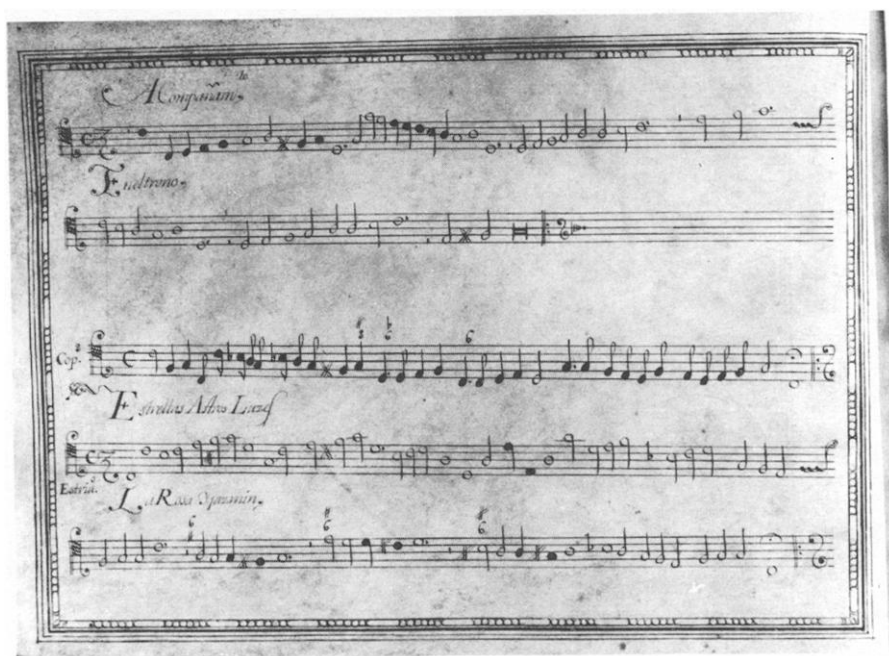 Acompañam.to
En el trono.
Cop.s
Estrellas Astros Luzes
Estriv.o
La Rosa Y jazmin.